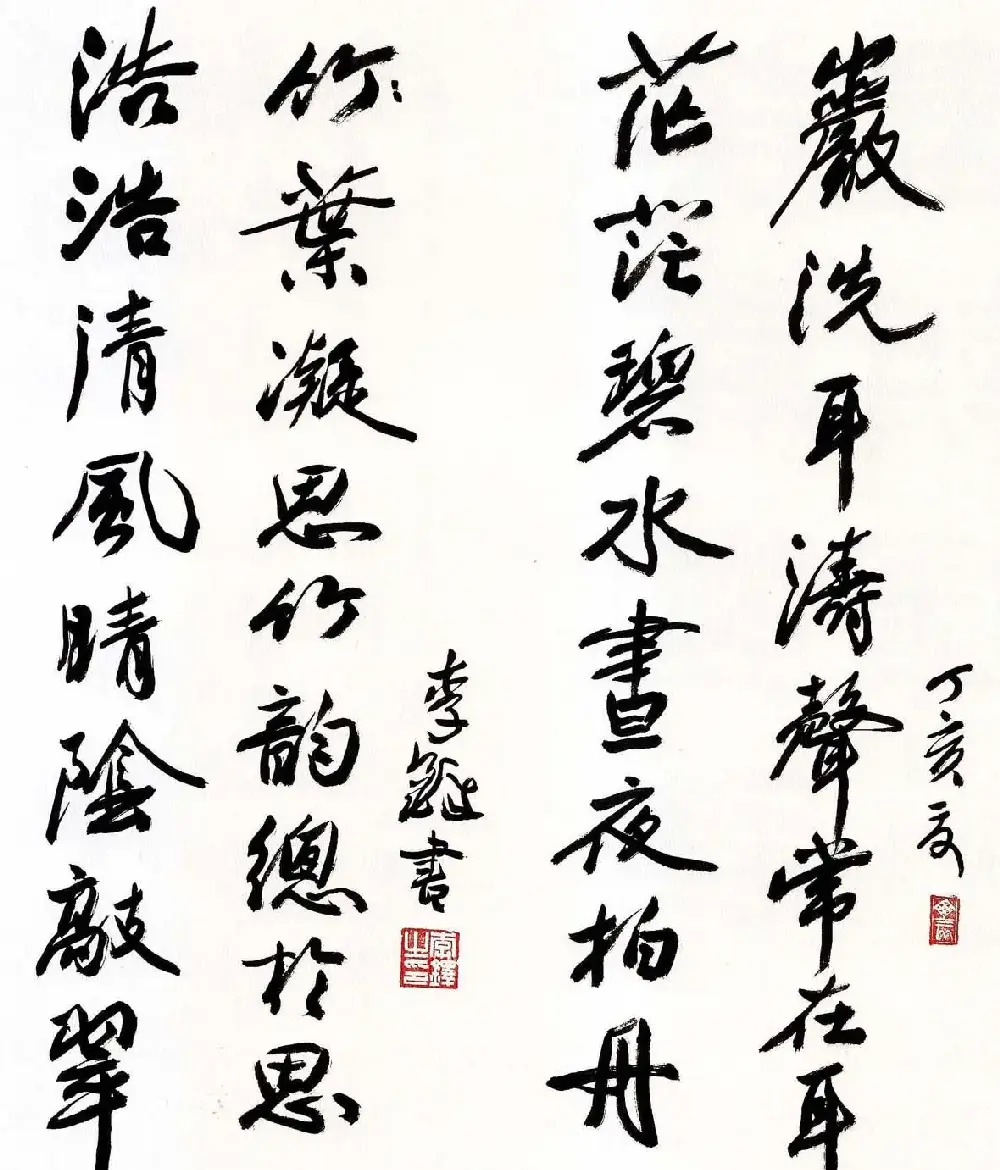 茫茫碧水晝夜拍丹
巖洗耳濤聲常在耳
丁亥
浩浩清風晴陰敲翠
竹葉凝思竹韻總於思
李鐸書
李鐸之印